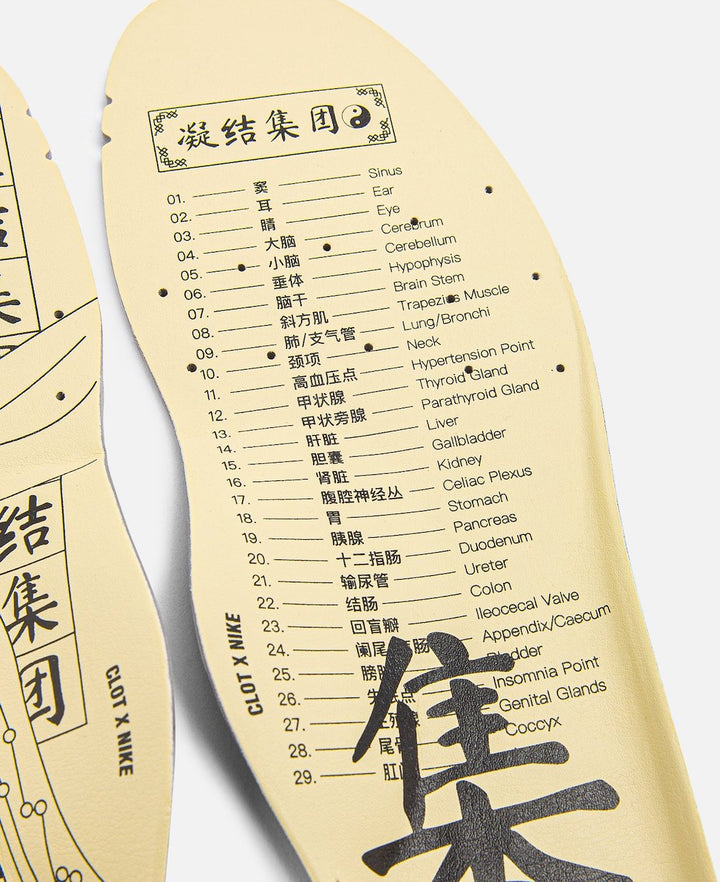 凝结集团
01. 窦 Sinus
02. 耳 Ear
03. 睛 Eye
04. 大脑 Cerebrum
05. 小脑 Cerebellum
06. 垂体 Hypophysis
07. 脑干 Brain Stem
08. 斜方肌 Trapezius Muscle
09. 肺/支气管 Lung/Bronchi
10. 颈项 Neck
11. 高血压点 Hypertension Point
12. 甲状腺 Thyroid Gland
13. 甲状旁腺 Parathyroid Gland
14. 肝脏 Liver
15. 胆囊 Gallbladder
16. 肾脏 Kidney
17. 腹腔神经丛 Celiac Plexus
18. 胃 Stomach
19. 胰腺 Pancreas
20. 十二指肠 Duodenum
21. 输尿管 Ureter
22. 结肠 Colon
23. 回盲瓣 Ileocecal Valve
24. Appendix/Caecum
25. Bladder
26. Insomnia Point
27. Genital Glands
28. 尾骨 Coccyx
29.
集
CLOT X NIKE
结
集
团
CLOT X NIKE